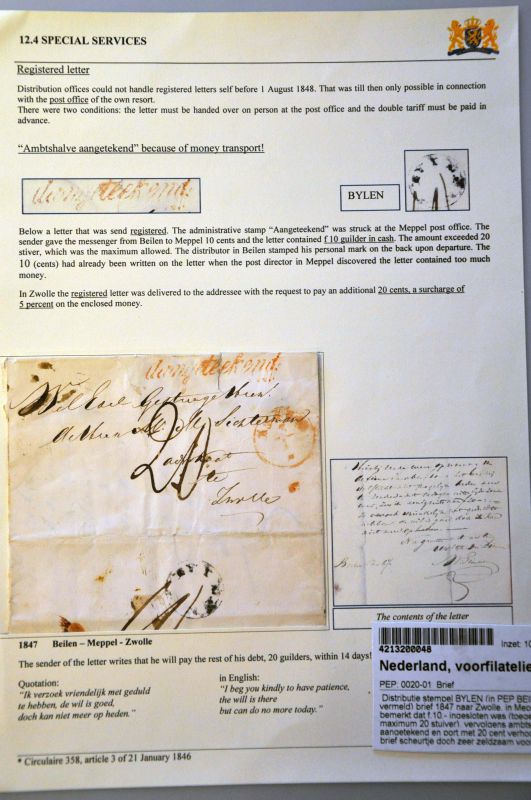 12.4 SPECIAL SERVICES
Registered letter
Distribution offices could not handle registered letters self before 1 August 1848. That was till then only possible in connection
with the post office of the own resort.
There were two conditions: the letter must be handed over on person at the post office and the double tariff must be paid in
advance.
“Ambtshalve aangetekend” because of money transport!
Aangeteekend.
BYLEN
Below a letter that was send registered. The administrative stamp “Aangeteekend” was struck at the Meppel post office. The
sender gave the messenger from Beilen to Meppel 10 cents and the letter contained f 10 guilder in cash. The amount exceeded 20
stiver, which was the maximum allowed. The distributor in Beilen stamped his personal mark on the back upon departure. The
10 (cents) had already been written on the letter when the post director in Meppel discovered the letter contained too much
money.
In Zwolle the registered letter was delivered to the addressee with the request to pay an additional 20 cents, a surcharge of
5 percent on the enclosed money.
Aangeteekend.
20
te
Zwolle
The contents of the letter
1847 Beilen – Meppel - Zwolle
The sender of the letter writes that he will pay the rest of his debt, 20 guilders, within 14 days!
Quotation:
“Ik verzoek vriendelijk met geduld
te hebben, de wil is goed,
doch kan niet meer op heden.”
in English:
“I beg you kindly to have patience,
the will is there
but can do no more today.”
* Circulaire 358, article 3 of 21 January 1846
4213200048
Inzet: 10
Nederland, voorfilatelie
PEP: 0020-01 Brief
Distributie stempel BYLEN (in PEP BEI
vermeld) brief 1847 naar Zwolle. in Mep
bemerkt dat f.10 - ingesloten was (toege
maximum 20 stuiver), vervolgens ambts
aangetekend en port met 20 cent verho
brief scheurtje doch zeer zeldzaam voor